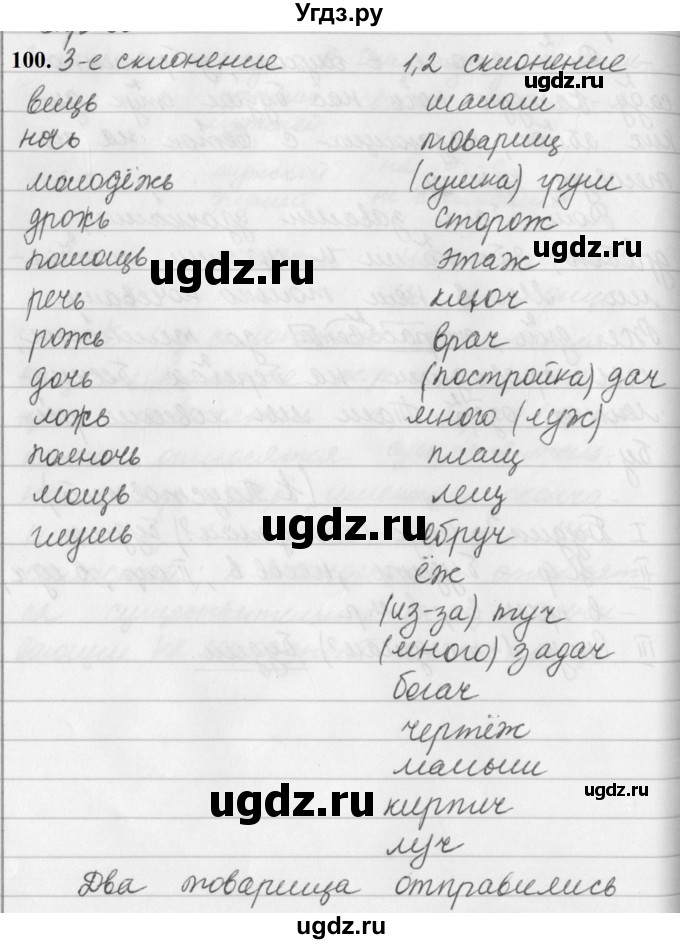 Угдз.ру
100. 3-е склонение 1,2 склонение
ugdz.ru
вещь шалаш
ночь товарищ
молодёжь (сушка) груш
дрожь сторож
ugdz.ru
помощь этаж
ugdz.ru
речь ключ
рожь врач
ugdz.ru
дочь (постройка) дач
ложь много (луж)
полночь плащ
мощь лещ
ugdz.ru
глушь обруч
ёж
(из-за) туч
(много) задач
богач
чертёж
малыш
ugdz.ru
ugdz.ru
кирпич
луч
Два товарища отправились
ugdz.ru